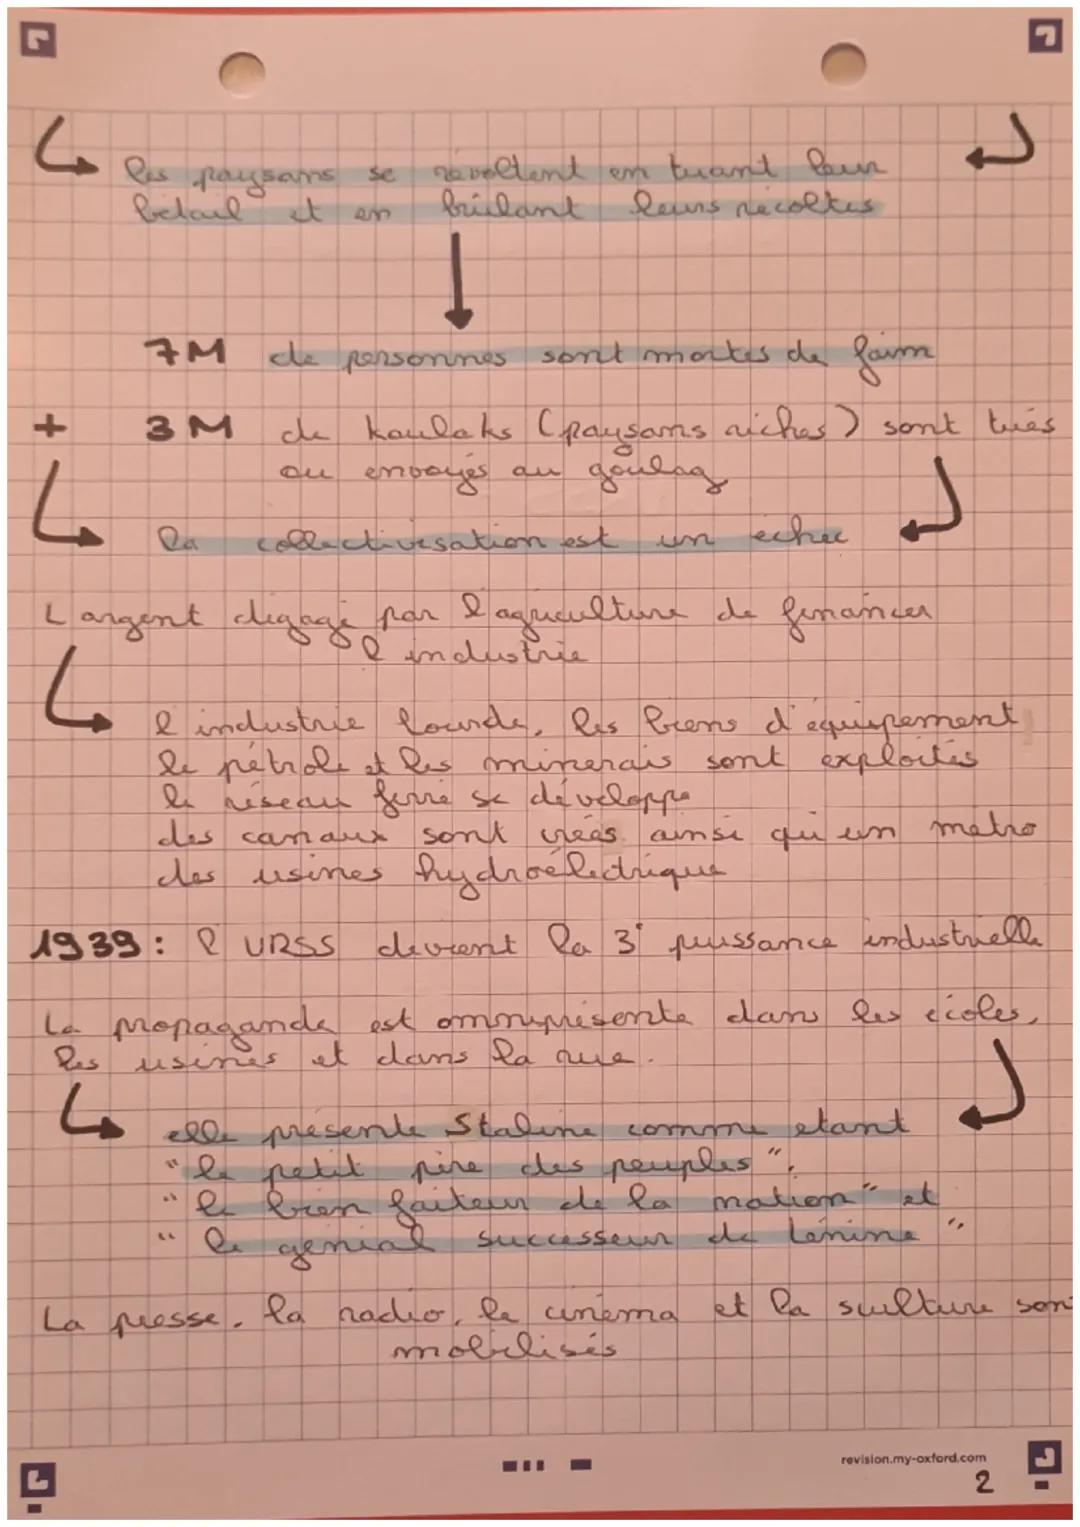 les paysans se révoltent en tuant leur
bétail et en brûlant leurs récoltes
7M de personnes sont mortes de faim
+ 3M de koulaks (paysans riches) sont tués
ou envoyés au goulag
la collectivisation est un échec
L argent dégagé par l'agriculture de financer
l industrie
l industrie lourde, les biens d'équipement
le pétrole et les minerais sont exploités
le réseau ferré se développe
des canaux sont créés ainsi qu'un métro
des usines hydroélectrique
1939 : l URSS devient la 3° puissance industrielle
La propagande est omniprésente dans les écoles,
les usines et dans la rue.
elle présente Staline comme étant
"le petit père des peuples",
"le bien faiteur de la nation" et
"le génial successeur de Lénine".
La presse, la radio, le cinéma et la sculture sont
mobilisés
revision.my-oxford.com
2